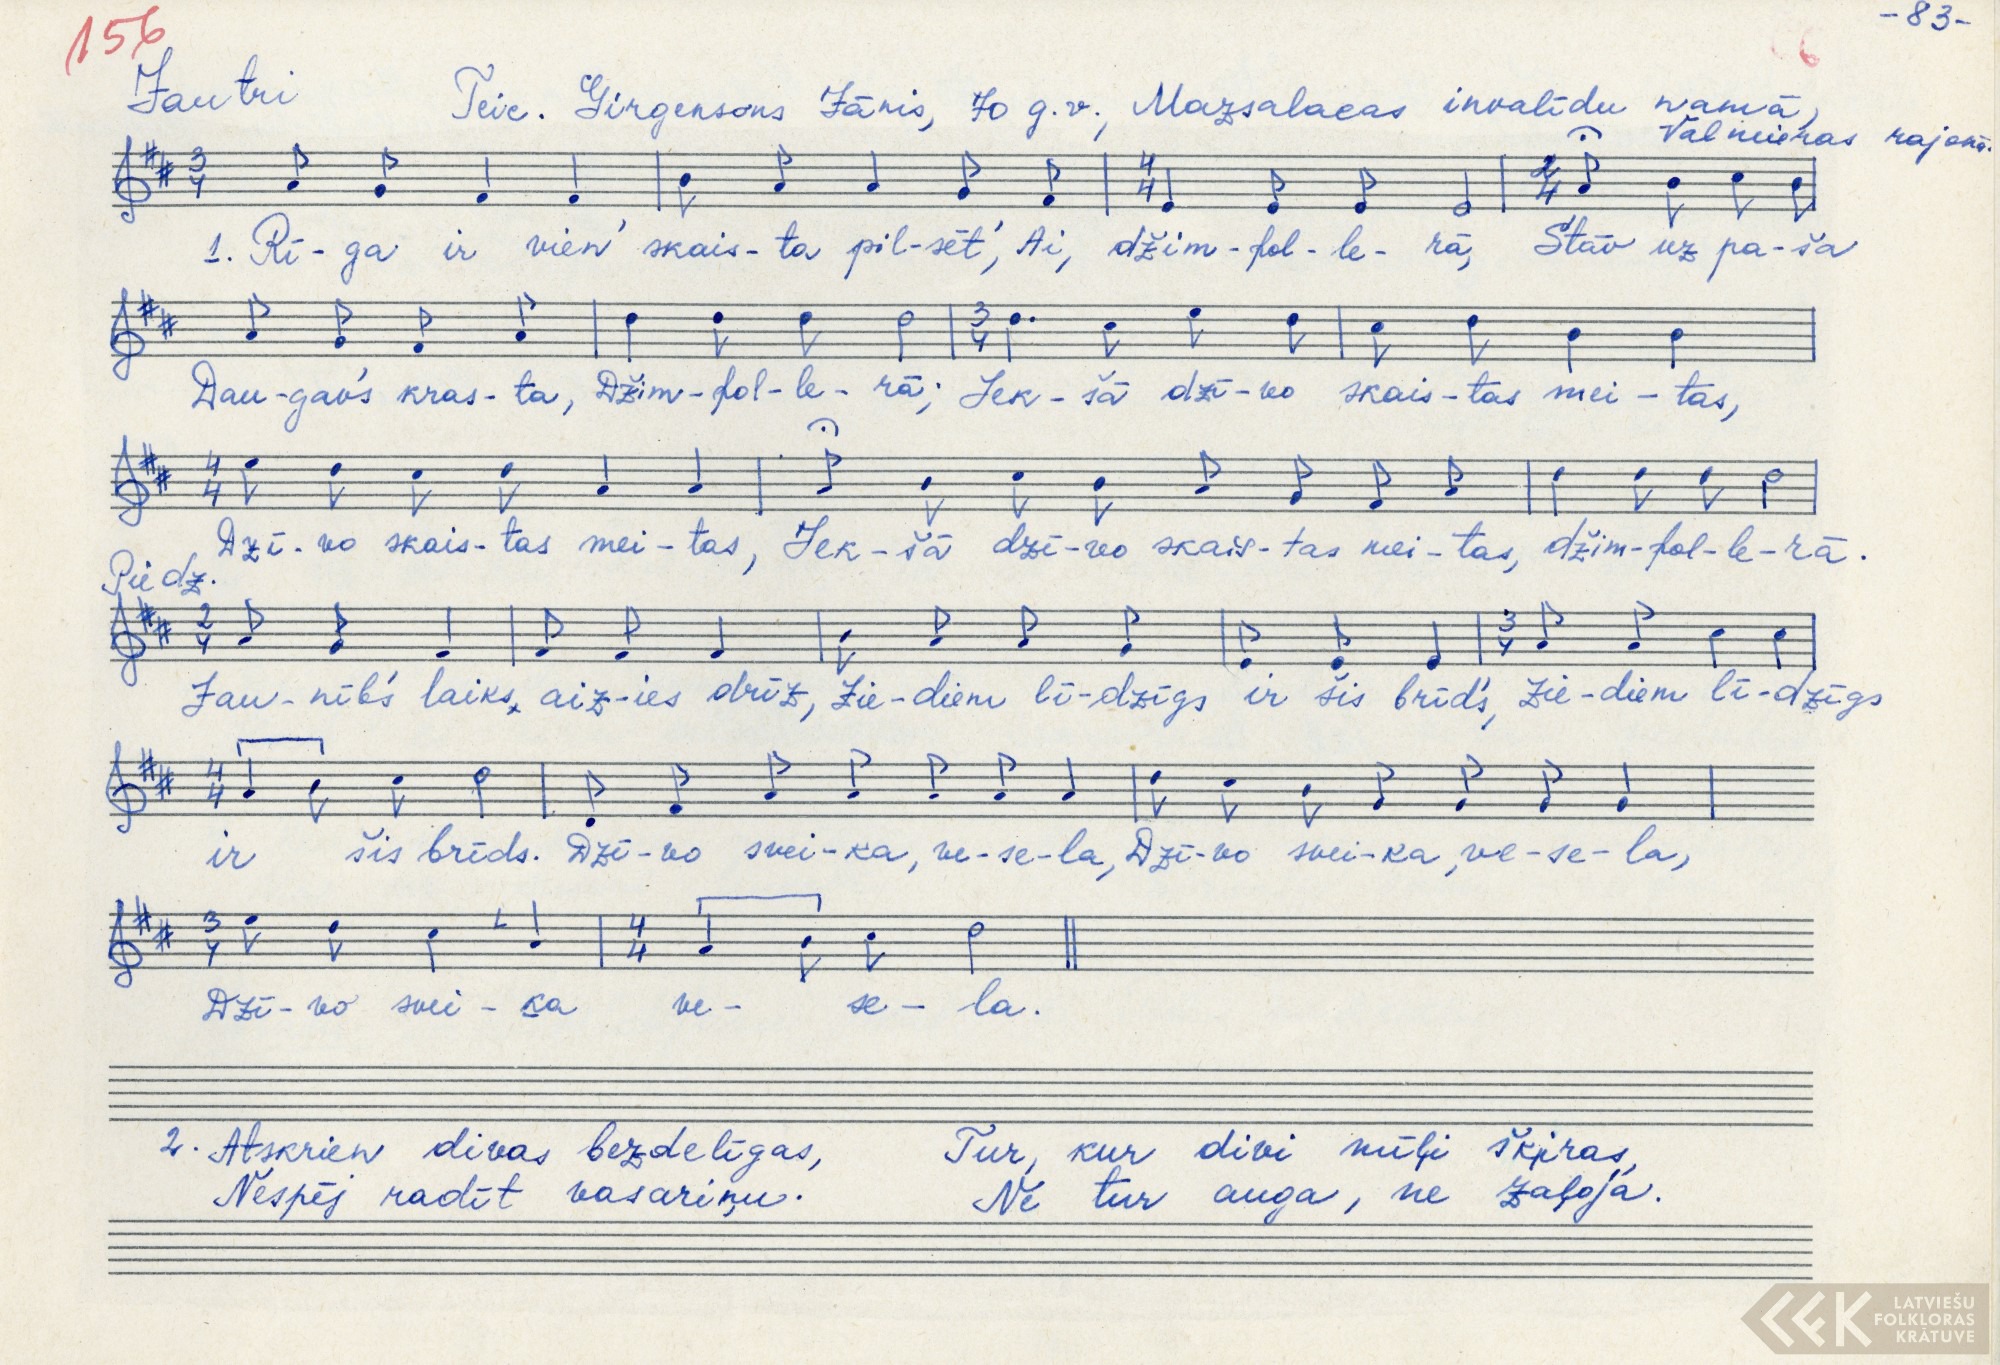 156
-83-
6
Jautri
Teic. Girgensons Jānis, 70 g.v., Mazsalacas invalīdu namā,
Valmieras rajonā.
3 4 4 4 2 4
1. Rī-ga ir vien' skais-ta pil-sēt', Ai, džim-pol-le-rā, Stāv uz pa-ša
3 4
Dau-gav's kras-ta, Džim-pol-le-rā; Iek-šā dzī-vo skais-tas mei-tas,
4 4
Dzī-vo skais-tas mei-tas, Iek-šā dzī-vo skais-tas mei-tas, džim-pol-le-rā.
Piedz.
2 4 3 4
Jau-nīb's laiks, aiz-ies drīz, Zie-diem lī-dzīgs ir šis brīd's, Zie-diem lī-dzīgs
4 4
ir šis brīds. Dzī-vo svei-ka, ve-se-la, Dzī-vo svei-ka, ve-se-la,
3 4 4 4
Dzī-vo svei-ka ve-se-la.
2. Atskrien divas bezdelīgas, Tur, kur divi mīļi šķiras,
Nespēj radīt vasariņu. Ne tur auga, ne zaļoja.
LATVIEŠU
FOLKLORAS
KRĀTUVE